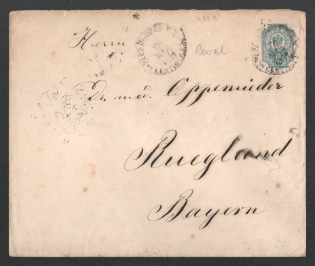 Herrn
Reval
Dr. med. Oppenrieder
Ruegland
Bayern